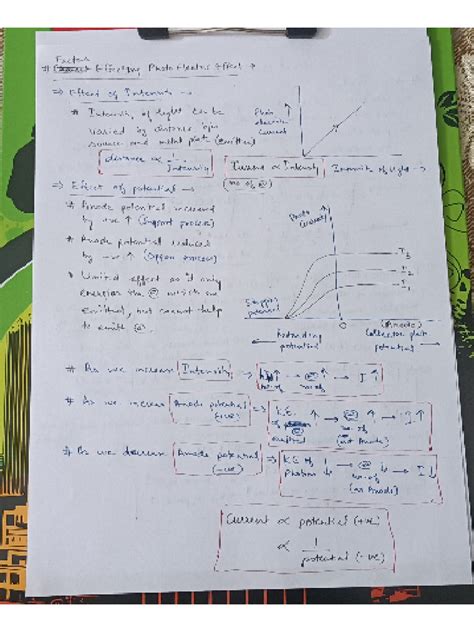 Factors
# Effecting Photo Electric Effect →
⇒ Effect of Intensity →
# Intensity of light can be
varied by distance b/w
source and metal plate (emitter)
distance ∝ 1/Intensity
Current ∝ Intensity
(no. of e)
Photo electric current ↑
Intensity of light →
⇒ Effect of potential →
# Anode potential increased
by +ve ↑ (Support process)
# Anode potential reduced
by -ve ↑ (Oppose process)
# Limited effect as it only
energize the e which are
emitted, but cannot help
to emit e.
Photo current ↑
I3
I2
I1
Stopping potential
O
(Anode)
← Retarding potential
Collector plate potential →
# As we increase Intensity ⇒ ↑ → e ↑ → I ↑
no. of no. of
# As we increase Anode potential (+ve) ⇒ K.E. ↑ → e ↑ → I ↑
of e emitted no. of (at Anode)
# As we decrease Anode potential (-ve) ⇒ KE of ↓ → e ↓ → I ↓
no. of (at Anode)
Current ∝ potential (+ve)
∝ 1/potential (-ve)